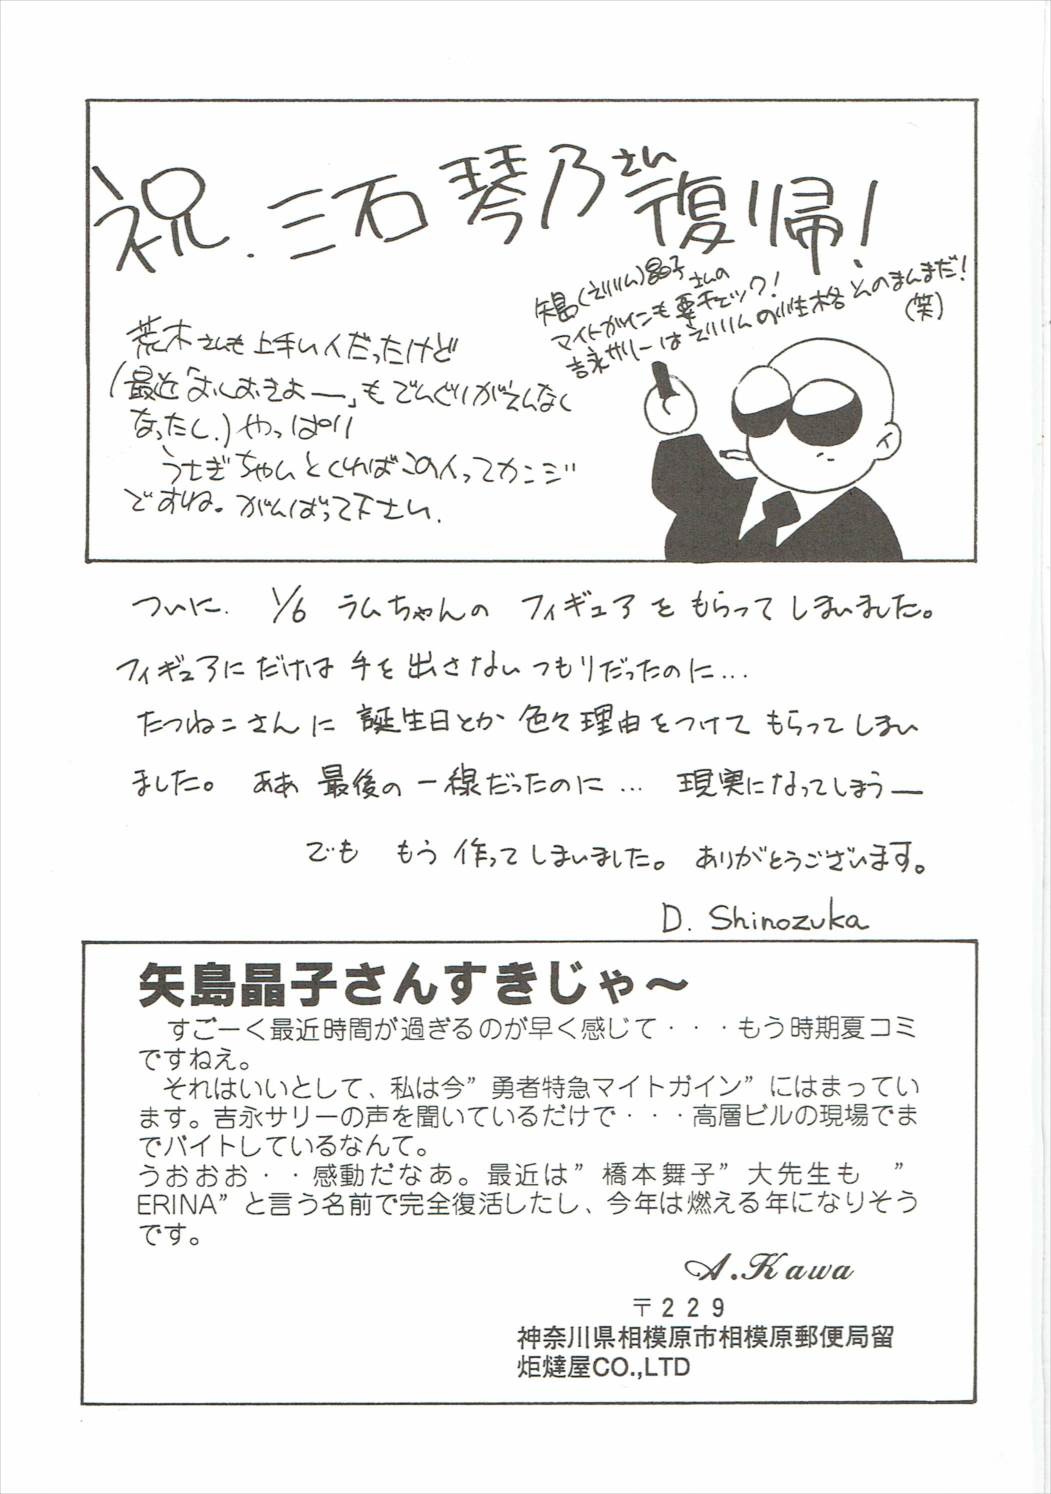 祝.三石琴乃さん復帰!
矢島(えりりん)晶子さんの
マイトガインも要チェック!
吉永サリーはえりりんの性格そのまんまだ!
(笑)
荒木さんも上手い人だったけど
(最近「おしおきよー」もでんぐりがえんなく
なったし.)やっぱり
うさぎちゃんとくればこの人ってカンジ
ですね。がんばって下さい.
ついに. 1/6 ラムちゃんの フィギュアを もらって しまいました。
フィギュアに だけは 手を 出さない つもりだったのに...
たつねこさんに 誕生日とか 色々 理由を つけて もらって しまい
ました。 ああ 最後の 一線だったのに... 現実に なって しまうー
でも もう 作って しまいました。 ありがとうございます。
D. Shinozuka
矢島晶子さんすきじゃ〜
すごーく最近時間が過ぎるのが早く感じて・・・もう時期夏コミ
ですねえ。
それはいいとして、私は今”勇者特急マイトガイン”にはまってい
ます。吉永サリーの声を聞いているだけで・・・高層ビルの現場でま
でバイトしているなんて。
うおおお・・感動だなあ。最近は”橋本舞子”大先生も ”
ERINA”と言う名前で完全復活したし、今年は燃える年になりそう
です。
A.Kawa
〒229
神奈川県相模原市相模原郵便局留
炬燵屋CO.,LTD